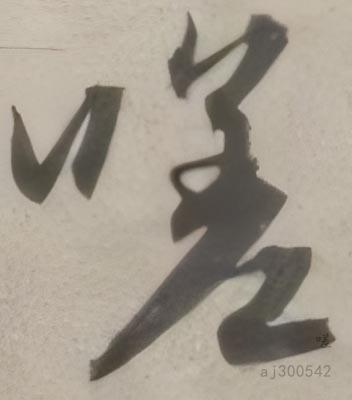 嗟
aj300542